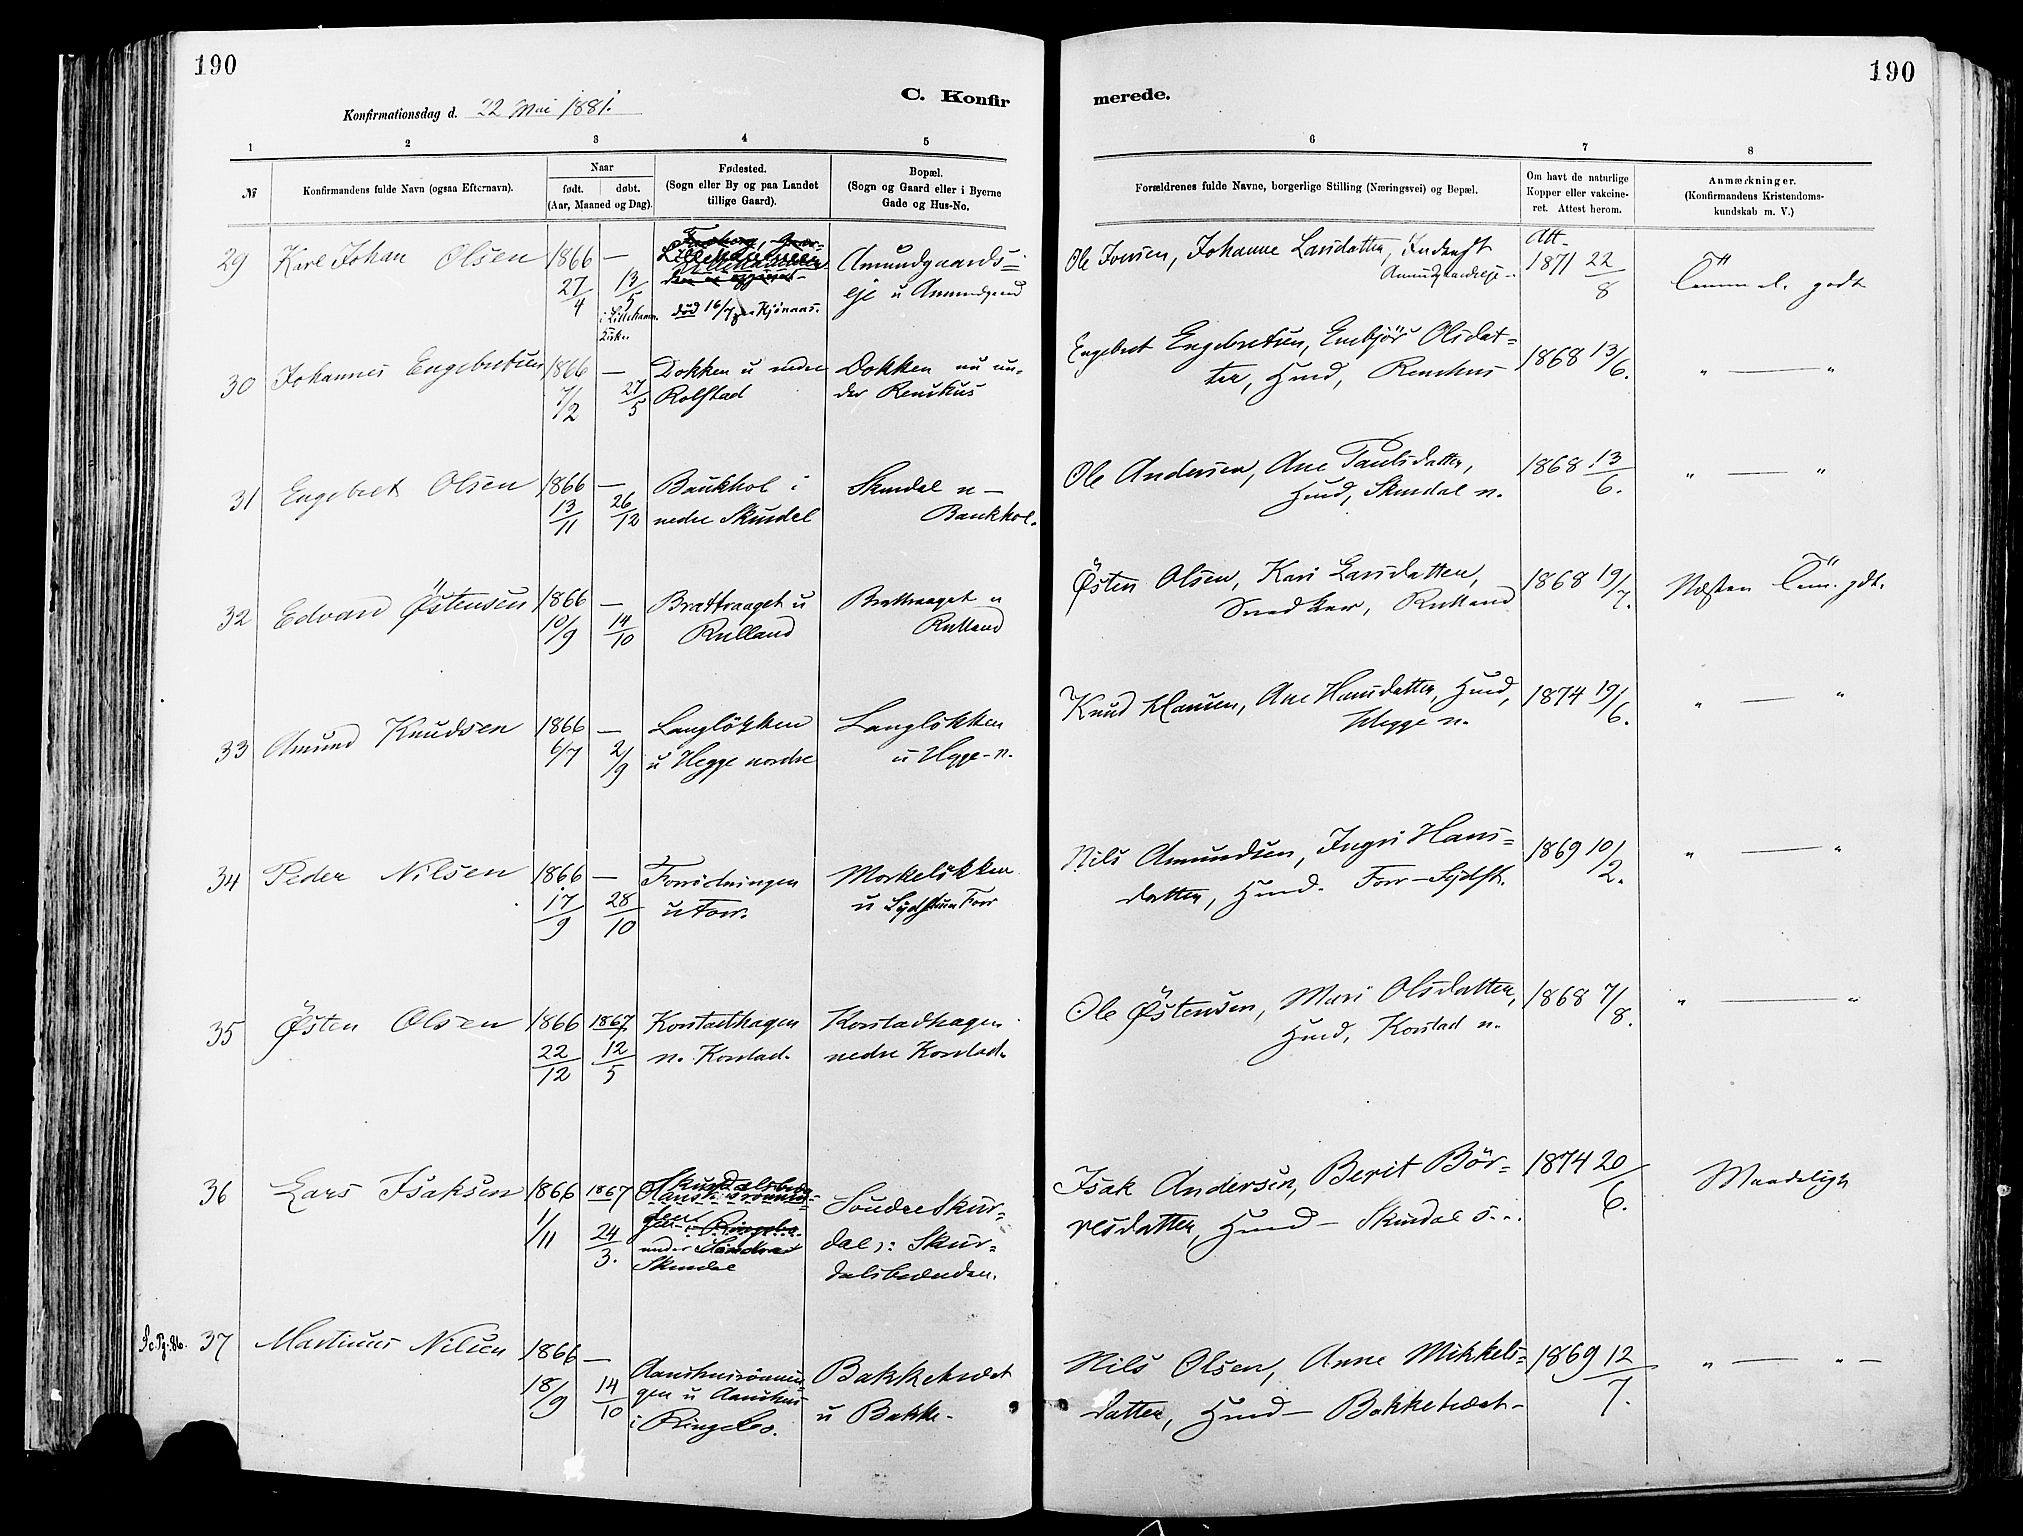 190
190
Konfirmationsdag d. 22 Mai 1881.
C. Konfir
merede.
1 2 3 4 5 6 7 8
№
Konfirmandens fulde Navn (ogsaa Efternavn).
Naar
født. døbt.
(Aar, Maaned og Dag).
Fødested.
(Sogn eller By og paa Landet
tillige Gaard).
Bopæl.
(Sogn og Gaard eller i Byerne
Gade og Hus-No.
Forældrenes fulde Navne, borgerlige Stilling (Næringsvei) og Bopæl.
Om havt de naturlige
Kopper eller vakcine-
ret. Attest herom.
Anmærkninger.
(Konfirmandens Kristendoms-
kundskab m. V.)
29 Karl Johan Olsen 1866 —
27/4 13/5
i Lilleham.
Kirke.
Lillehammer
død 16/7 Kjönaas.
Amundgaards-
eje u Amundgaard
Ole Jonsen, Johanne Larsdatter, Inderst
Amundgaardseje
Att.
1871 22/8
godt
30 Johannes Engebretsen 1866 —
7/2 27/5
Dokken u nedre
Rolstad
Dokken nu un-
der Renskus
Engebret Engebretsen, Embjör Olsdat-
ter, Husd, Renskus
1868 13/6.
" — "
31 Engebret Olsen 1866 —
13/11 26/12
Baukhol i
nedre Skurdal
Skurdal n—
Baukhol.
Ole Andersen, Ane Paulsdatter,
Husd, Skurdal n.
1868 13/6.
" — "
32 Edvard Östensen 1866 —
10/9 14/10
Brattraaget u
Rulland
Brattraaget u
Rulland
Østen Olsen, Kari Larsdatter,
Snedker, Rulland
1868 19/7.
Næsten gdt.
33 Amund Knudsen 1866 —
6/7 2/9
Langlökken
u Hegge nordre
Langlökken
u Hegge-n.
Knud Hansen, Ane Hansdatter, Husd,
Hegge n.
1874 19/6.
" — "
34 Peder Nilsen 1866 —
17/9 28/10
u Forr.
Morkelökken
u Sydstuen Forr
Nils Amundsen, Ingri Hans-
datter, Husd. Forr-Sydst.
1869 10/2.
" — "
35 Østen Olsen 1866 1867
22/12 12/5
Korstadhagen
n. Korstad.
Korstadhagen
nedre Korstad.
Ole Østensen, Mari Olsdatter,
Husd, Korstad n.
1868 7/8.
" — "
36 Lars Isaksen 1866 1867
1/11 24/3.
under Söndre
Skurdal
Söndre Skur-
dal ɔ: Skur-
dalsbrænden.
Isak Andersen, Berit Bör-
resdatter, Husd — Skurdal s..
1874 20/6.
Maadeligt
Se Pg. 86. 37 Martinus Nilsen 1866 —
18/9 14/10
Aanshusrönnin-
gen u Aanshus
i Ringebo.
Bakketrædet
u Bakke.
Nils Olsen, Anne Mikkels-
datter, Husd — Bakketrædet
1869 12/7.
" — " —